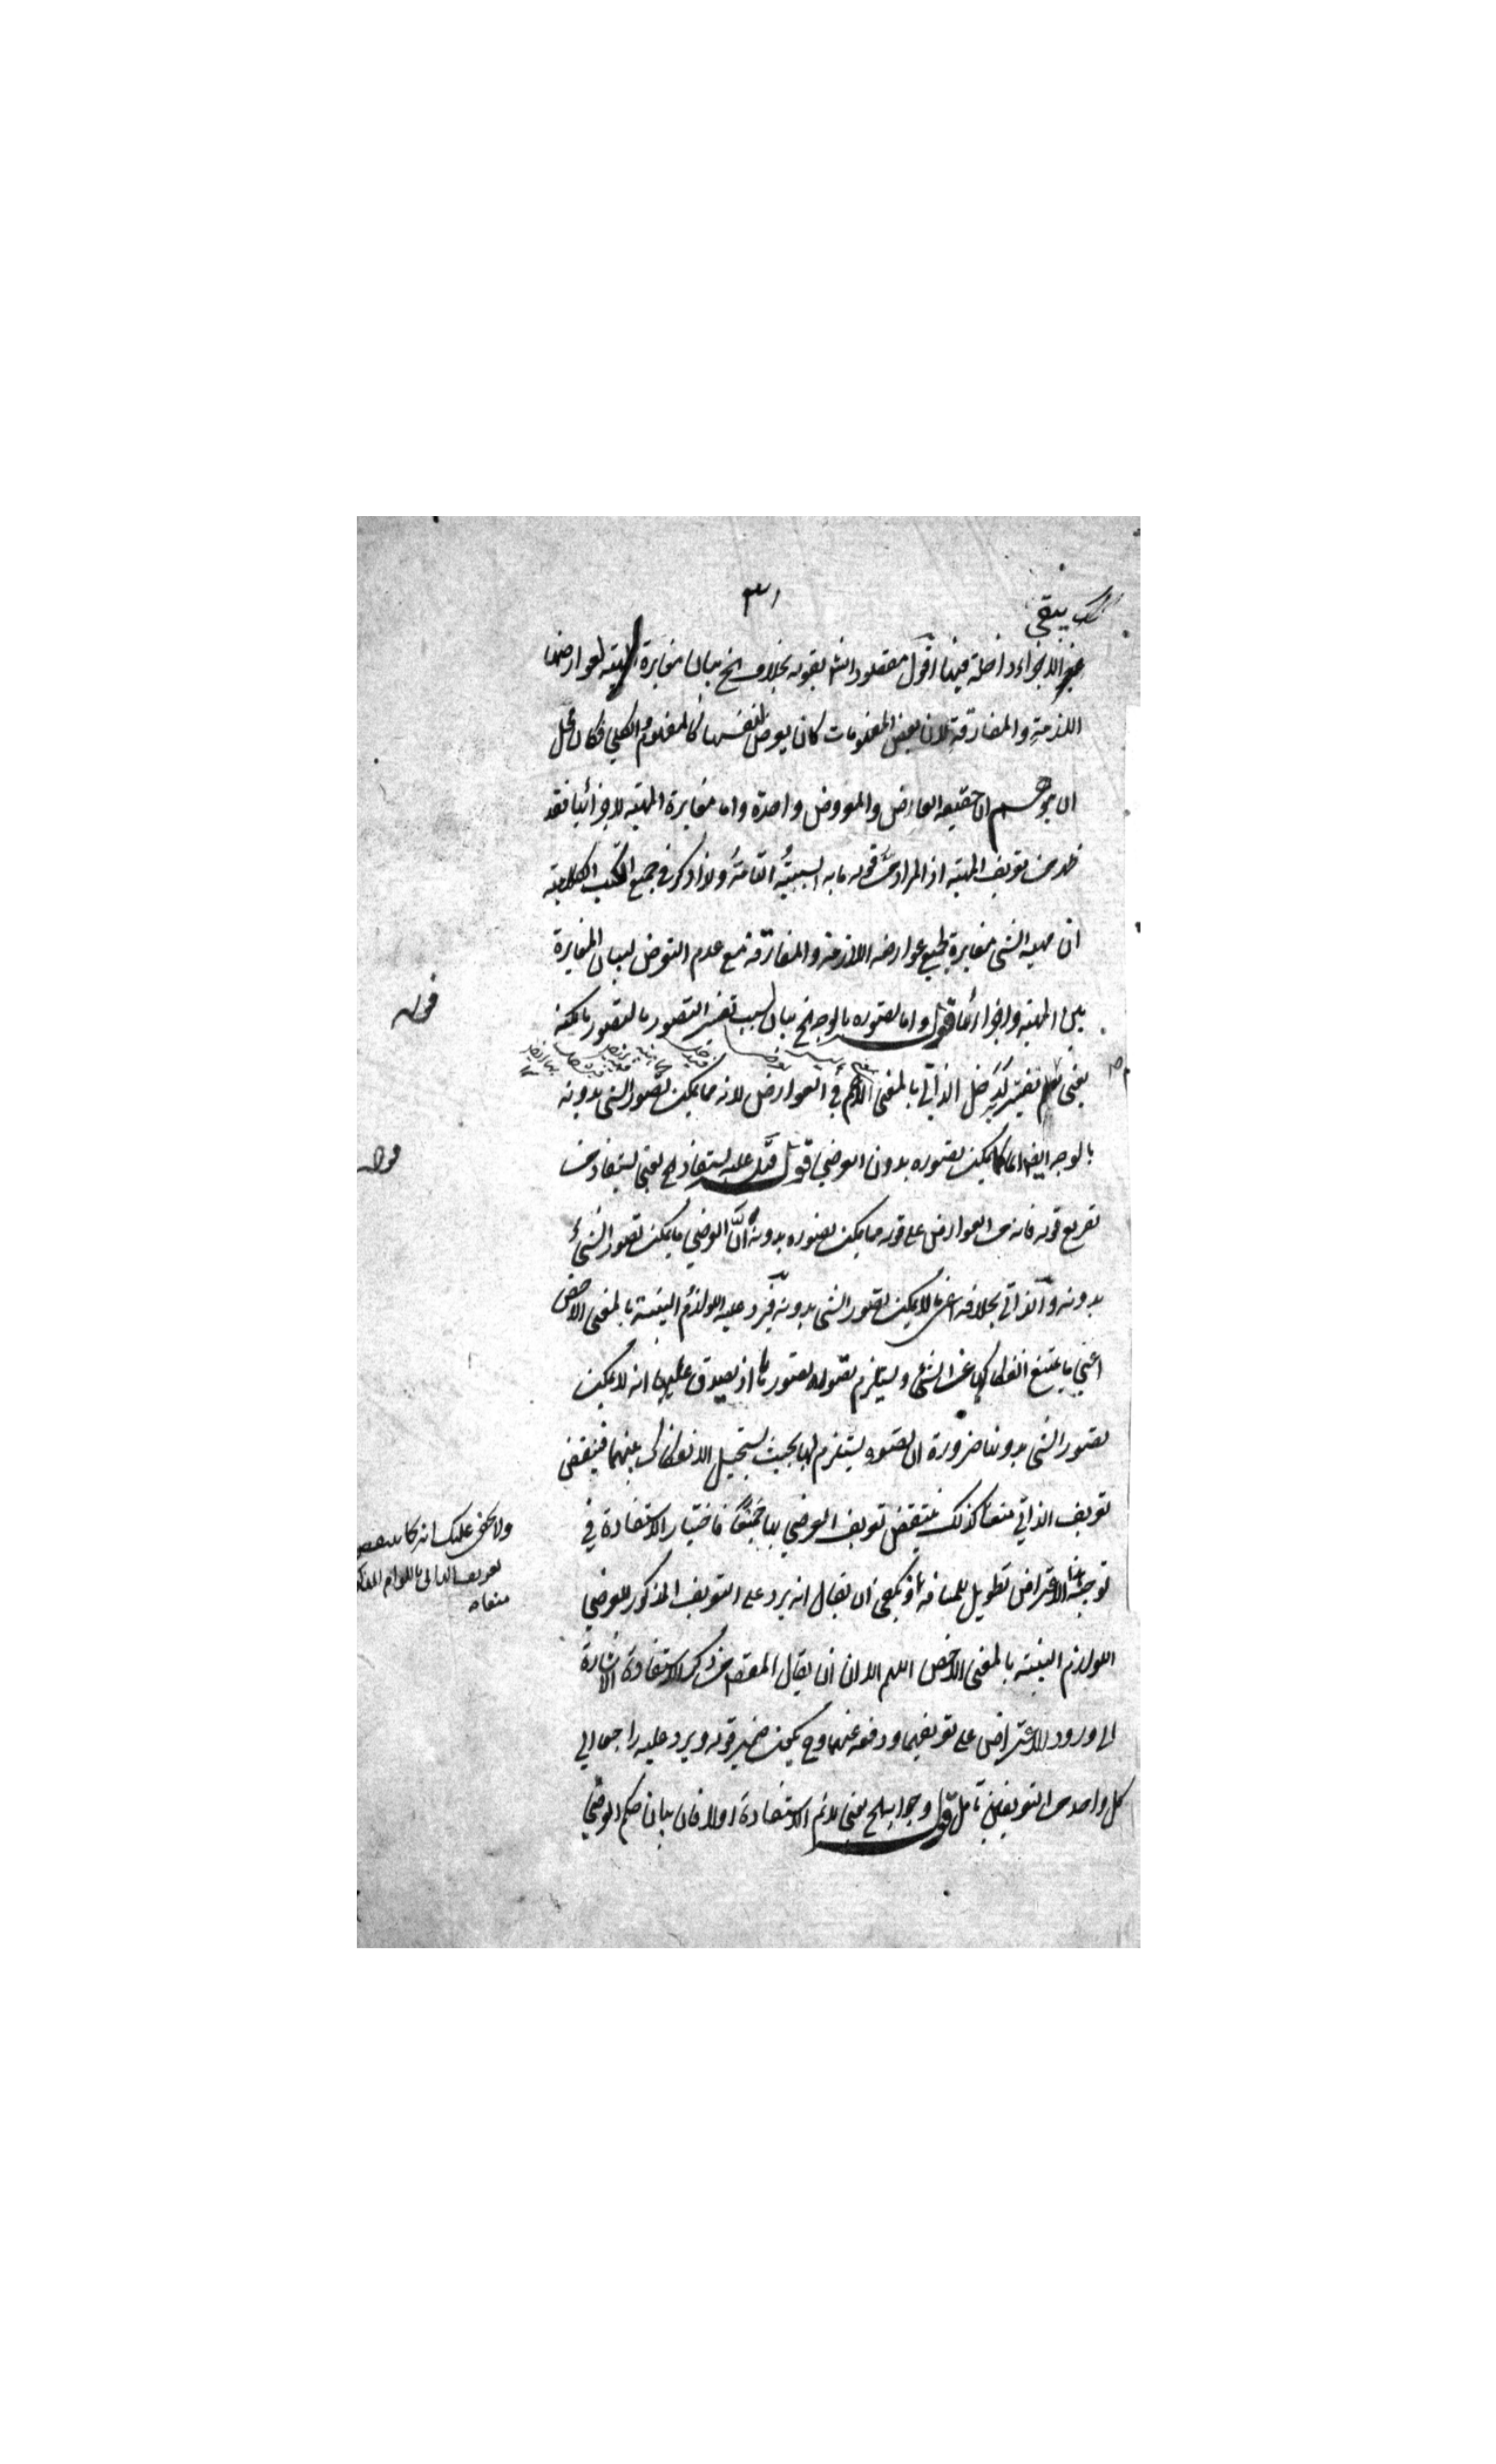 يبقى
٣١
غير الاجزاء داخلة فيها اقول مقصود الش بقوله بخلاف الخ بيان مغايرة المهية لعوارضها
اللازمة والمفارقة لان بعض المفهومات كان يعرض لنفسها كالمفهوم والكلي فكان محل
ان يتوهم ان حقيقة العارض والمعروض واحدة واما مغايرة المهية لاجزائها فقد
ظهر من تعريف المهية اذ المراد من قوله ما به السببية التامة ولذا ذكر في جميع الكتب الكلامية
ان مهية الشئ مغايرة لجميع عوارضه اللازمة والمفارقة مع عدم التعرض لبيان المغايرة
بين المهية واجزائها قوله واما تصوره بالوجه الخ بيان لسبب تفسير التصور بالتصور بالكنه
يعني لو لم تفسر لدخل الذاتي بالمعنى الاعم في العوارض لانه مما يمكن تصور الشئ بدونه
بالوجه ايضا كما يمكن تصوره بدون العرضي قوله قيل عليه يستفاد الخ يعني يستفاد من
تفريع قوله فانه من العوارض على قوله مما يمكن تصوره بدونه ان العرضي ما يمكن تصور الشئ
بدونه والذاتي بخلافه اعني ما لا يمكن تصور الشئ بدونه فيرد عليه اللوازم البينة بالمعنى الاخص
اعني ما يمتنع انفكاكها عن الشئ ويستلزم تصوره تصورها اذ يصدق عليها انه لا يمكن
تصور الشئ بدونها ضرورة ان تصوره يستلزم لها بحيث يستحيل الانفكاك بينهما فينتقض
تعريف الذاتي منعا كذلك ينتقض تعريف العرضي بها جمعا فاختيار الاستفادة في
توجيه هذا الاعتراض تطويل للمسافة اذ يكفي ان يقال انه يرد على التعريف المذكور للعرضي
اللوازم البينة بالمعنى الاخص اللهم الا ان يقال المقصود من ذكر الاستفادة الاشارة
الى ورود الاعتراض على تعريفيهما ودفعه عنهما وح يكون ضمير قوله ويرد عليه راجعا الى
كل واحد من التعريفين تأمل قوله وجوابه الخ يعني لانم الاستفادة اولا فان بيان حكم العرضي
قوله
قوله
ولا يخفى عليك انه كما ينتقض
تعريف الذاتي باللوازم
منعا